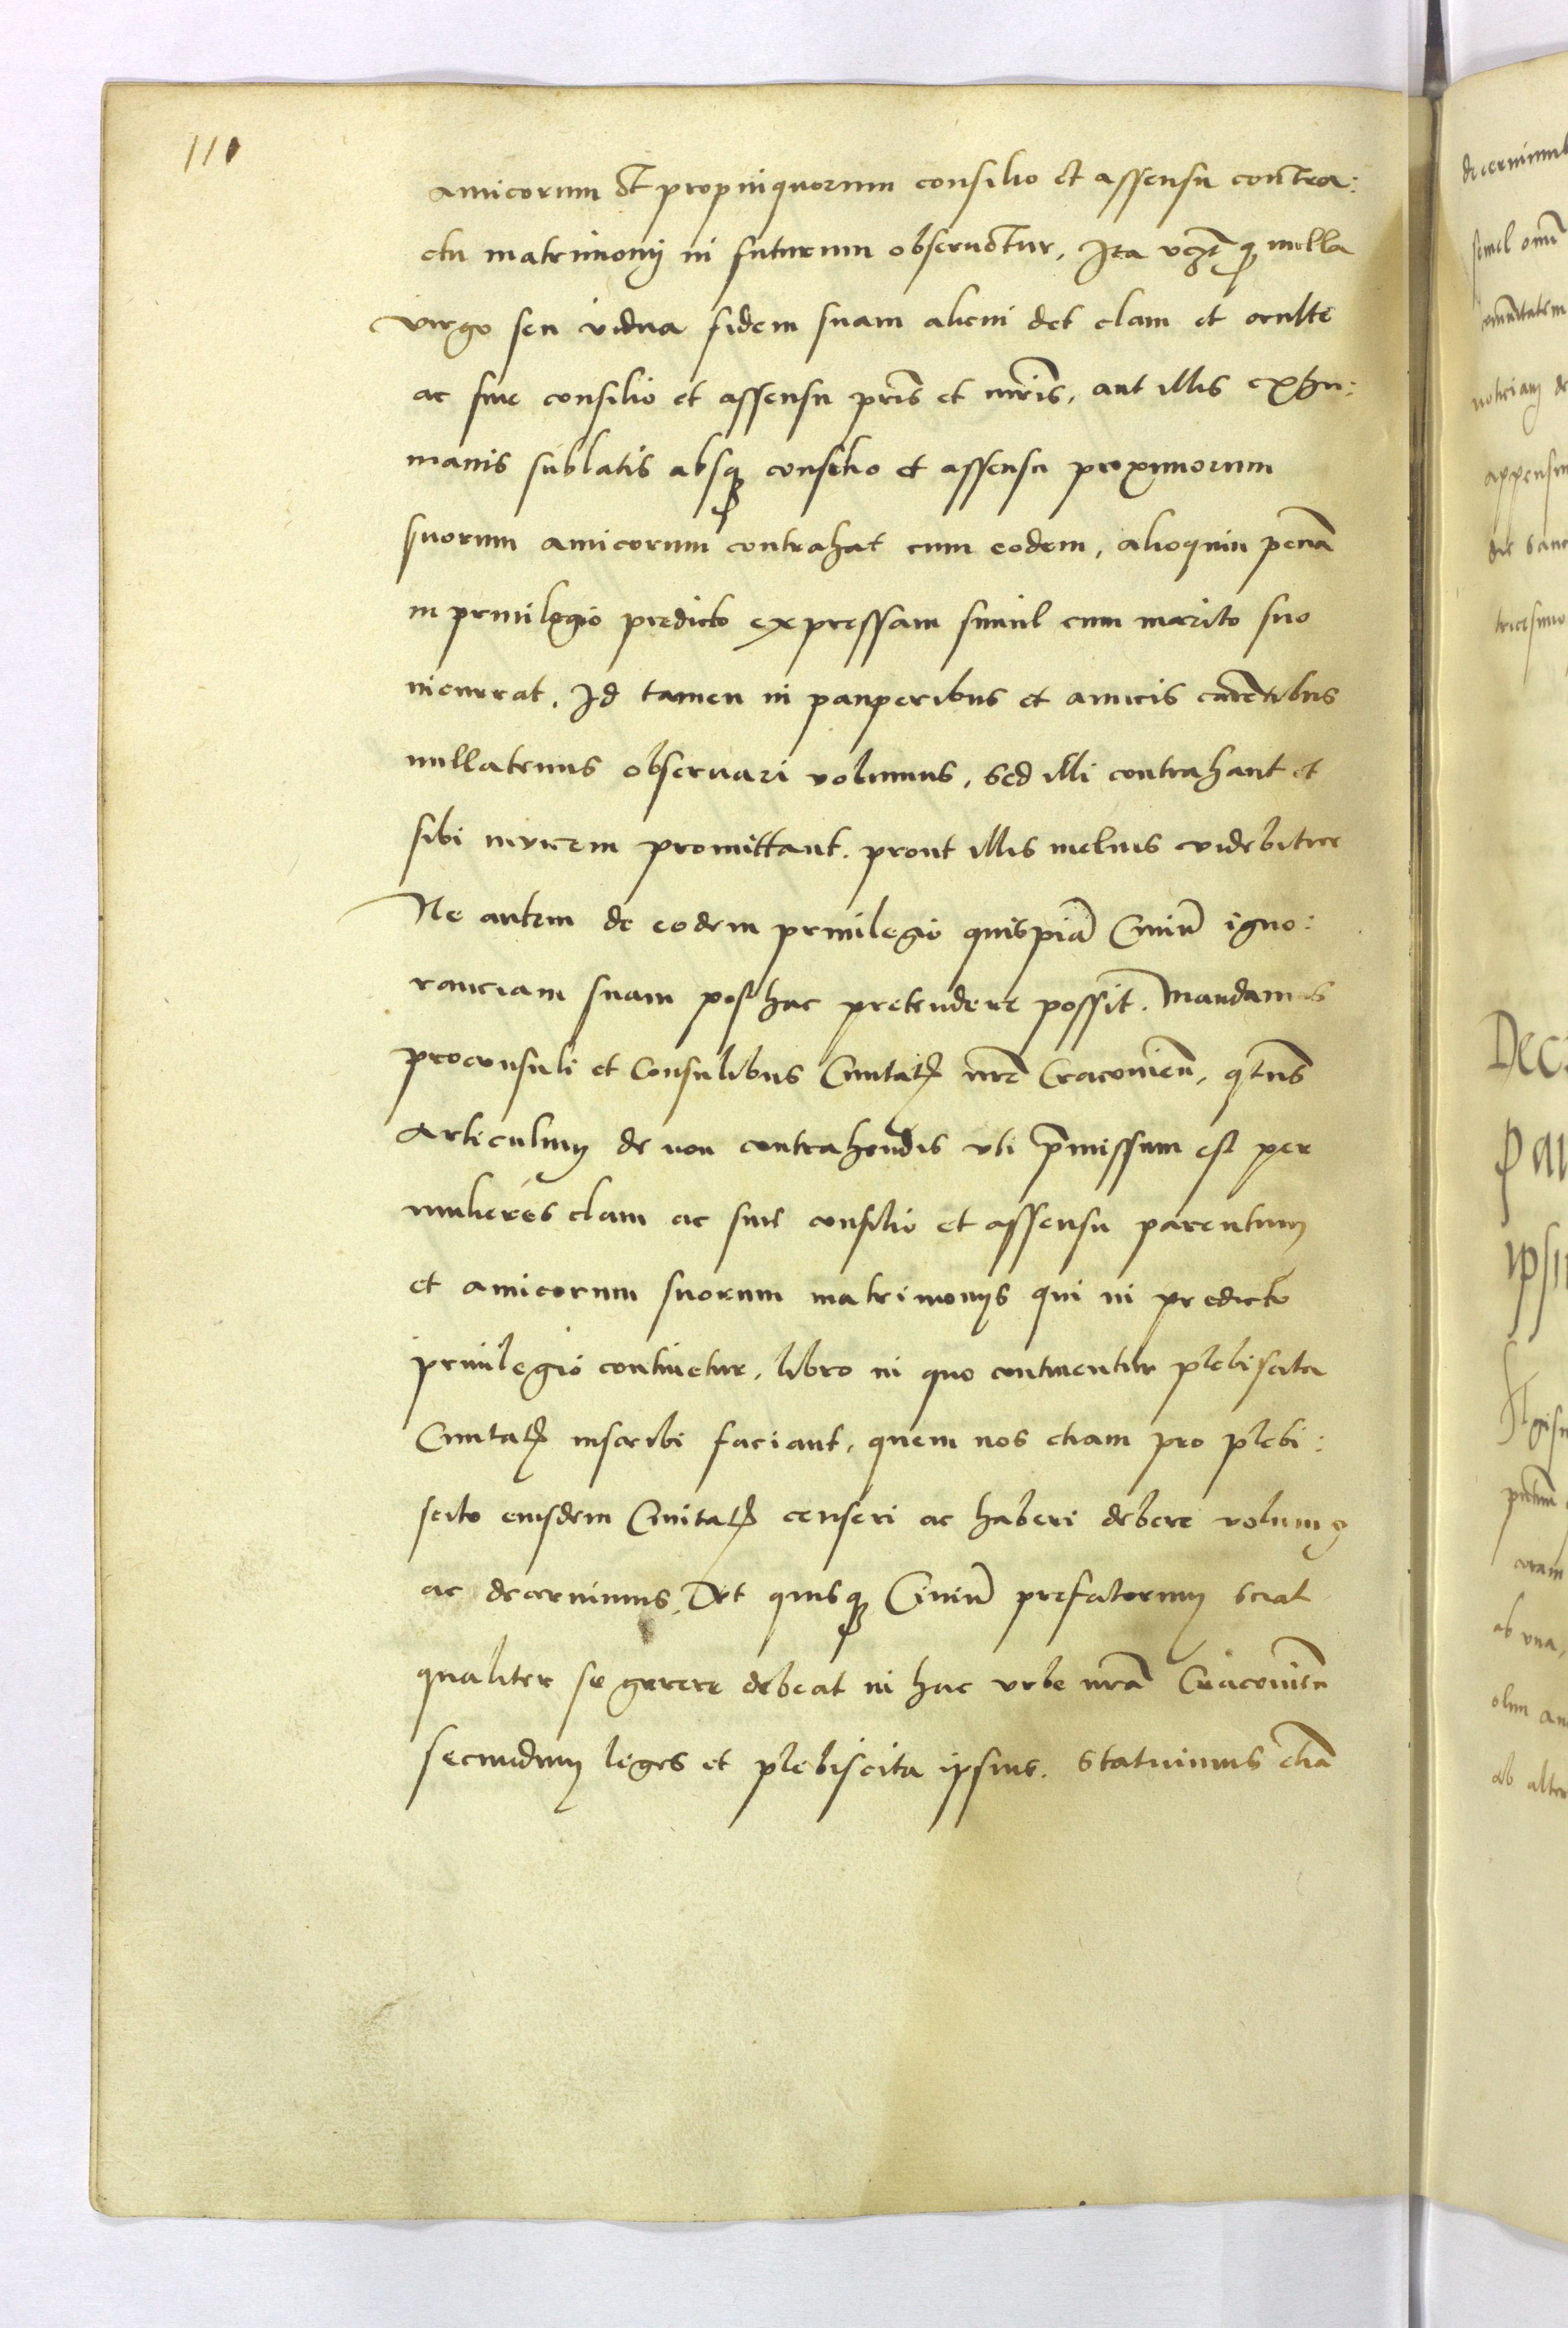 110
amicorum et propinquorum consilio et assensu contra:
ctu matrimonij in futurum observetur, Ita vcz̃t q̨ nulla
virgo seu vidua fidem suam alicui det clam et oculte
ac sine consilio et assensu pr̃is et mr̃is, aut illis ex hu:
manis sublatis absq̨ consilio et assensu proximorum
suorum amicorum contrahat cum eodem, alioquin penã
in privilegio predicto expressam simul cum marito suo
incurrat, Id tamen in pauperibus et amicis carẽtibus
nullatenus observari volumus, Sed illi contrahant et
sibi invicem promittant, prout illis melius videbitur
Ne autem de eodem privilegio quispiã Civiũ igno:
ranciam suam posthac pretendere possit, Mandamus
proconsuli et Consulibus Civitatꝭ nr̃e Cracovieñ, q̃tns
articulum de non contrahendis vti p̃missum est per
mulieres clam ac sine consilio et assensu parentum
et amicorum suorum matrimonijs qui in predicto
privilegio continetur, libro in quo continentur plebiscita
Civitatꝭ inscribi faciant, quem nos etiam pro plebi:
scito eiusdem Civitatꝭ censeri ac haberi debere volumꝰ
ac decernimus, Vt quisq̨ Civiũ prefatorum sciat
qualiter se gerere debeat in hac vrbe nr̃a Cracovieñ
secundum leges et plebiscita ipsius. Statuimus etiã
decernimus
semel omni
noticiam de
appensum
die Sanc
tricesimo
Dec
pa
ipsi
coram
ab vna,
olim an
ab alter